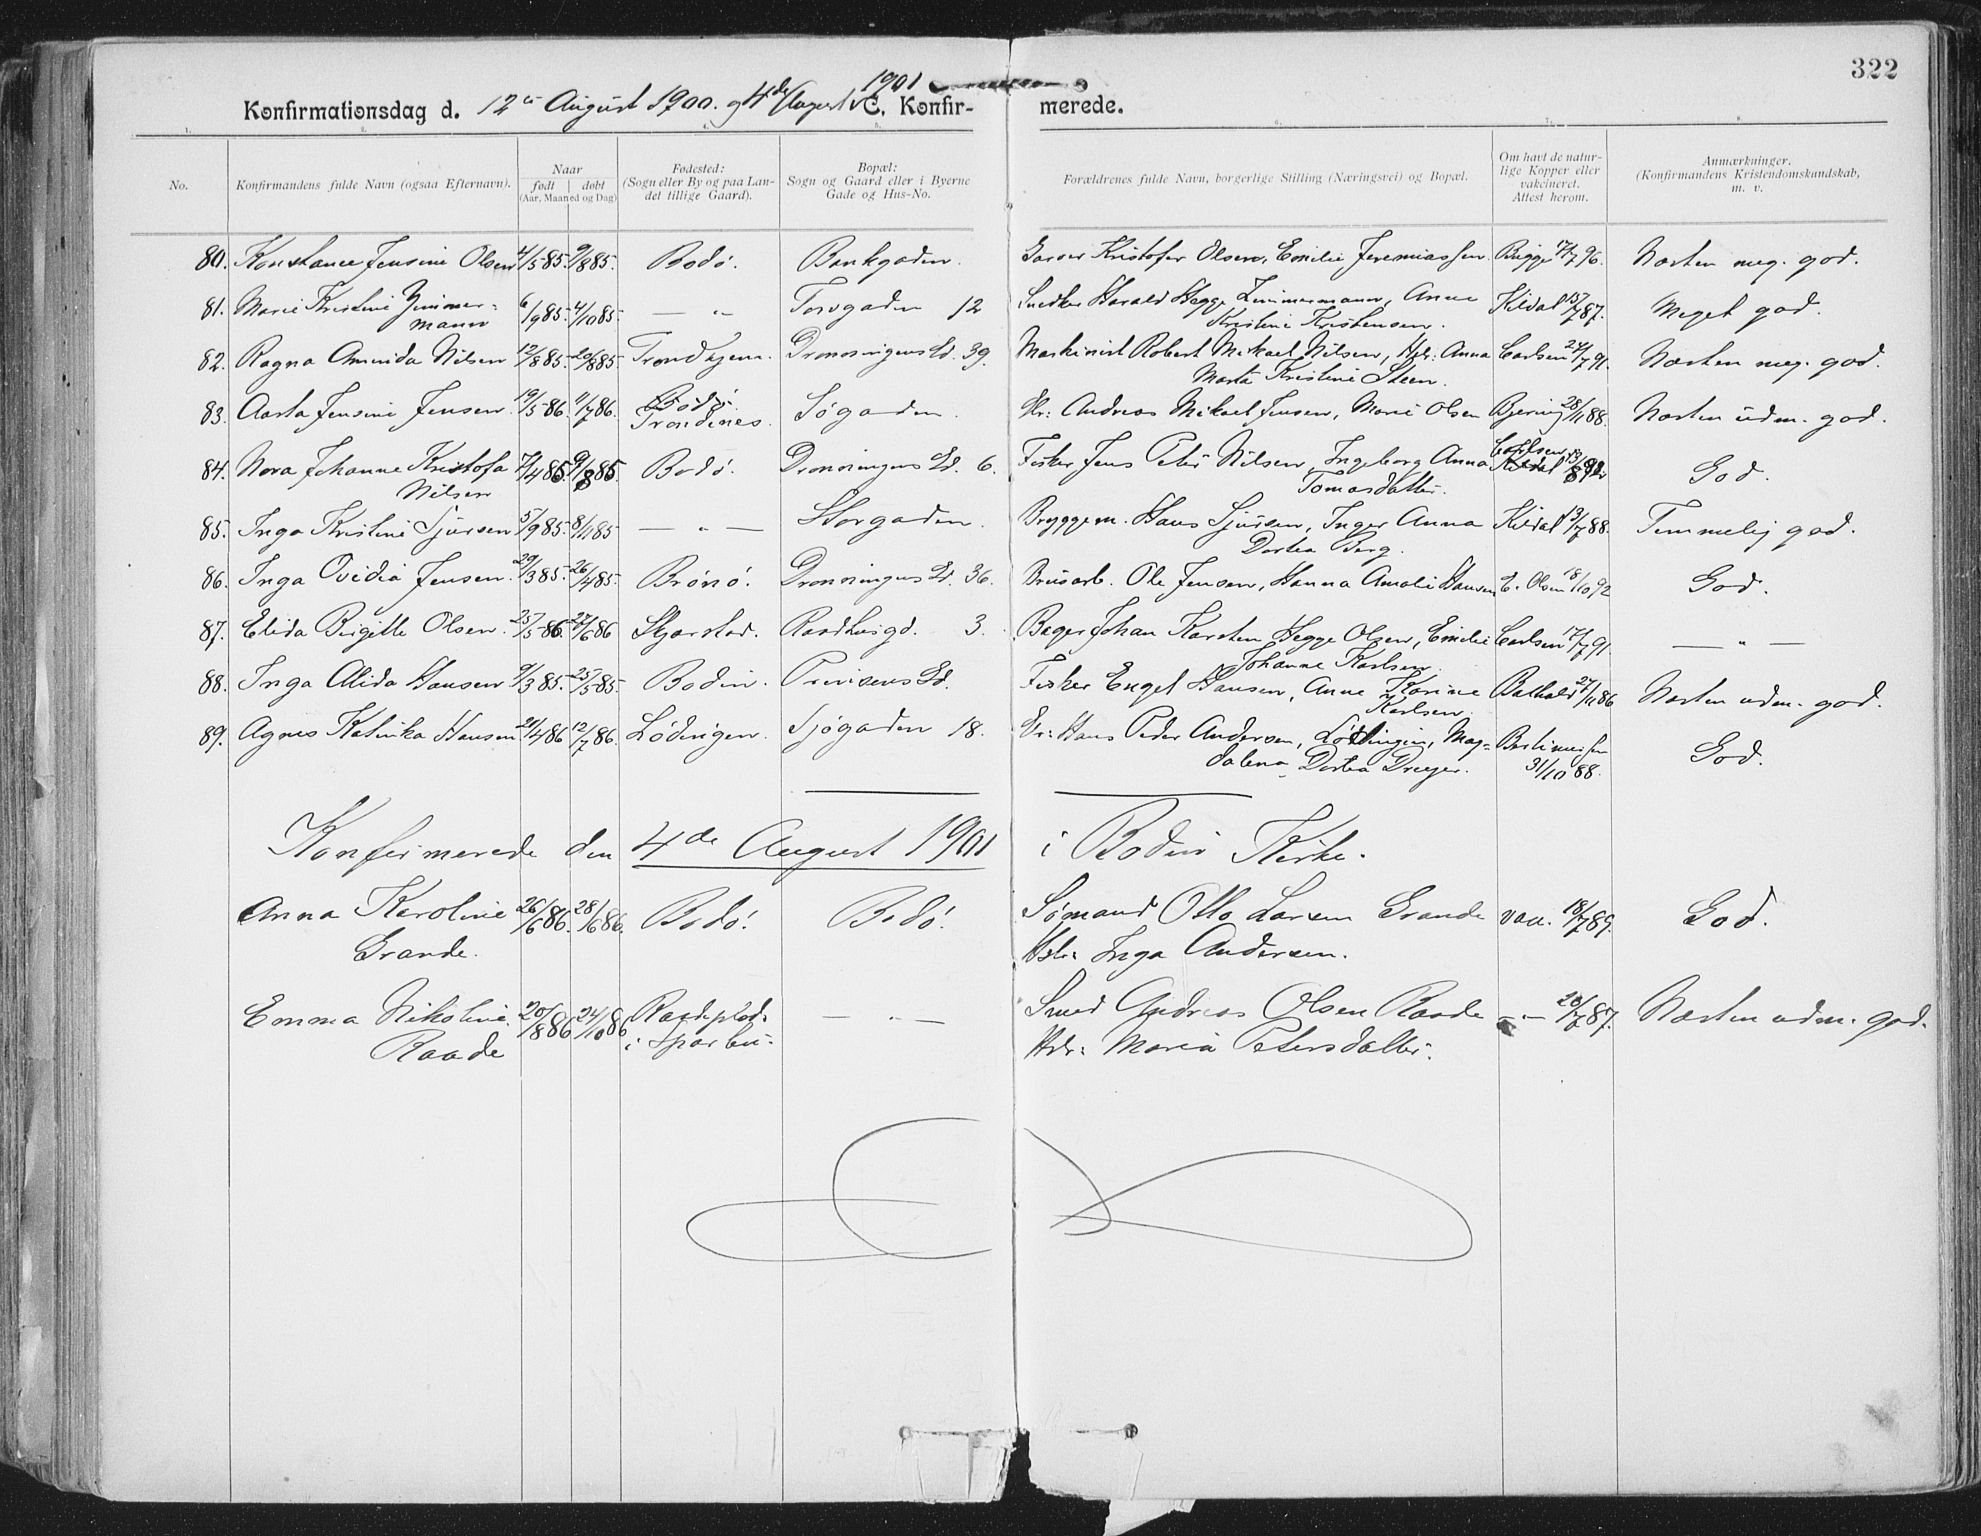 322
1901
Konfirmationsdag d. 12te August 1900. og 4de August C. Konfir- merede.
1. 2. 4. 5. 6. 7. 8.
No. Konfirmandens fulde Navn (ogsaa Efternavn). Naar født døbt (Aar, Maaned og Dag) Fødested: (Sogn eller By og paa Landet tillige Gaard). Bopæl: Sogn og Gaard eller i Byerne Gade og Hus-No. Forældrenes fulde Navn, borgerlige Stilling (Næringsvei) og Bopæl. Om havt de naturlige Kopper eller vakcineret. Attest herom. Anmærkninger. (Konfirmandens Kristendomskundskab, m. v.
80. Konstance Jensine Olsen 4/5 85. 9/8 85. Bodø. Bankgaden. Garver Kristofer Olsen, Emilie Jeremiassen. Bugge 17/7 96. Næsten meg. god.
81. Marie Kristine Zimmer- 6/9 85. 4/10 85. — " — Torvgaden 12 Snedker Harald Hegge Zimmermann, Anne Kildal 15/7 87. Meget god.
mann Kristine Kristensen.
82. Ragna Aminda Nilsen 12/8 85. 20/8 85. Trondhjem. Dronningens Gd. 39. Maskinist Robert Mikael Nilsen, Hst: Anna Carlsen 24/7 91. Næsten meg. god.
Marta Kristine Steen.
83. Aasta Jensine Jensen. 19/5 86. 11/7 86. Bodø. Søgaden. Hr: Andreas Mikael Jensen, Marie Olsen Bjering 28/11 88. Næsten udm. god.
Trondenes.
84. Nora Johanne Kristofa 7/4 85. 9/8 85. Bodø. Dronningens Gd. 6. Fisker Jens Peter Nilsen, Ingeborg Anna Carlsen Kildal 13/8 92. God.
Nilsen Tomasdatter.
85. Inga Kristine Sjursen 5/9 85. 8/11 85 — " — Storgaden. Bryggem. Hans Sjursen, Inger Anna Kildal 19/7 88. Temmelig god.
Dortea Berg.
86. Inga Ovidia Jensen. 29/3 85. 26/4 85. Brønø. Dronningens Gd. 36. Brusarb. Ole Jensen, Hanna Amalie Hansen E. Olsen 18/10 92 God.
87. Elida Birgitte Olsen. 25/5 86. 27/6 86 Skjerstad. Raadhusgd. 3. Bager Johan Karsten Hegge Olsen, Emilie Carlsen 17/7 91 — " —
Johanne Karlsen.
88. Inga Alida Hansen 9/3 85. 25/5 85. Bodin. Prinsens Gd. Fisker Engel Hansen, Anne Karine 27/11 86 Næsten udm. god.
Karlsen.
89. Agnes Katinka Hansen 21/4 86 12/7 86. Lødingen. Sjøgaden 18. Er: Hans Peder Andersen, Lødingen, Mag- God.
dalena Dortea Dreyer. 31/10 88.
Konfirmerede den 4de August 1901 i Bodin Kirke.
Anna Karoline 26/6 86. 28/6 86. Bodø. Bodø. Sømand Otto Larsen Grande vac. 18/7 89. God.
Grande. Hst: Inga Andersen.
Emma Nikoline 20/8 86 24/10 86 i Sparbu. — " — Smed Andreas Olsen Raade — " — 20/7 87. Næsten udm. god.
Raade Hst: Maria Petersdatter.